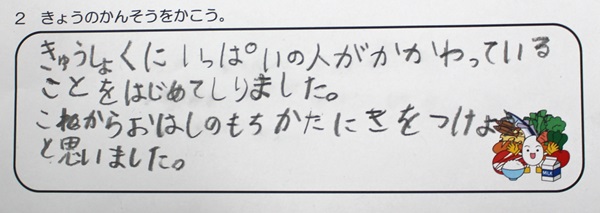 2 きょうのかんそうをかこう。
きゅうしょくにいっぱいの人がかかわっている
ことをはじめてしりました。
これからおはしのもちかたにきをつけよ
と思いました。
MILK